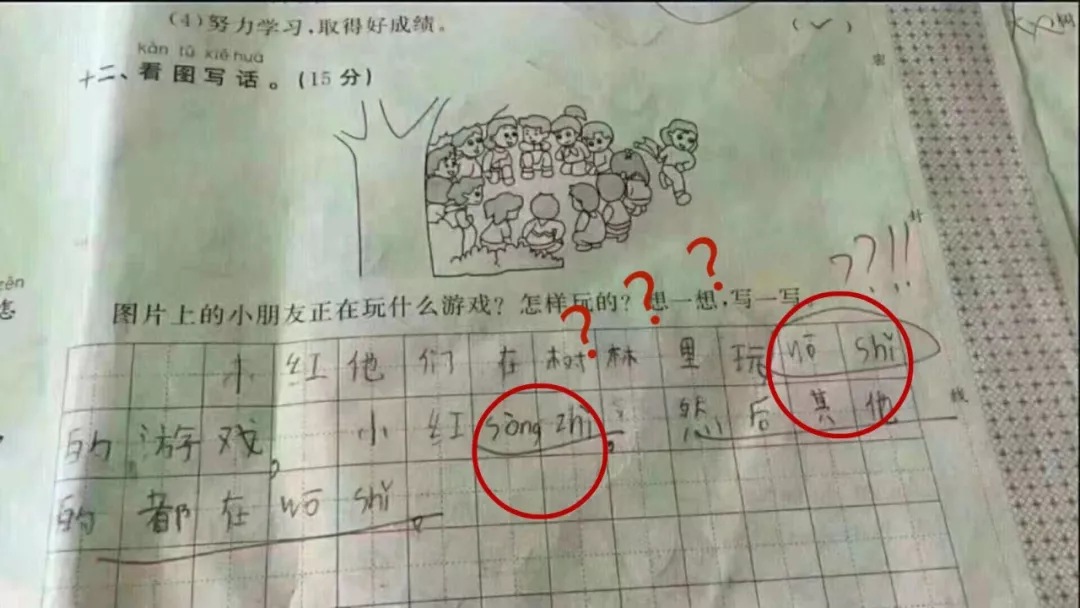 (4)努力学习,取得好成绩。 (✓)
kàn tú xiě huà
十二、看图写话。(15分)
密
封
??!!
? ? ?
zěn
图片上的小朋友正在玩什么游戏?怎样玩的?想一想,写一写。
小红他们在树林里玩wō shǐ
线
的游戏,小红sòng zhǐ。然后其他
的都在wō shǐ。